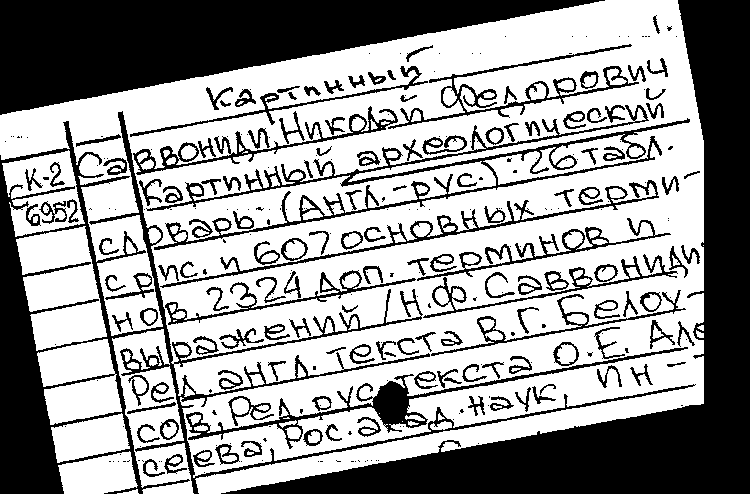 1.
Картинный
Саввониди, Николай Федорович
Картинный археологический
СК-2
6952
словарь: (Англ.-рус.): 26 табл.
с рис. и 607 основных терми-
нов, 2324 доп. терминов и
выражений / Н.Ф. Саввониди.
Ред. англ. текста В.Г. Белоу-
сов; Ред. рус. текста О.Е. Але
сеева; Рос. акад. наук, Ин -